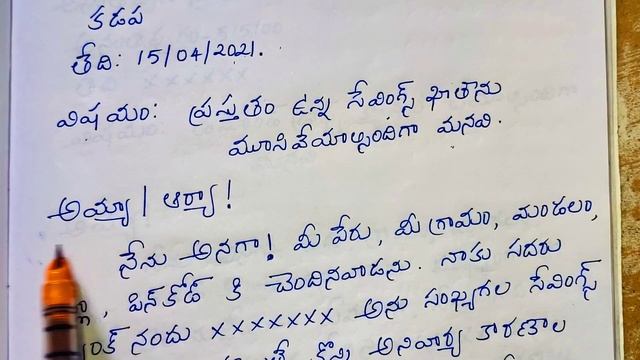 కడప
తేది: 15/04/2021.
విషయం: ప్రస్తుతం ఉన్న సేవింగ్స్ ఖాతాను
మూసివేయాల్సిందిగా మనవి.
అయ్యా / ఆర్యా!
నేను అనగా! మీ పేరు, మీ గ్రామం, మండలం,
, పిన్‌కోడ్ కి చెందినవాడను. నాకు సదరు
నందు ××××××× అను సంఖ్యగల సేవింగ్స్
కొన్ని అనివార్య కారణాల